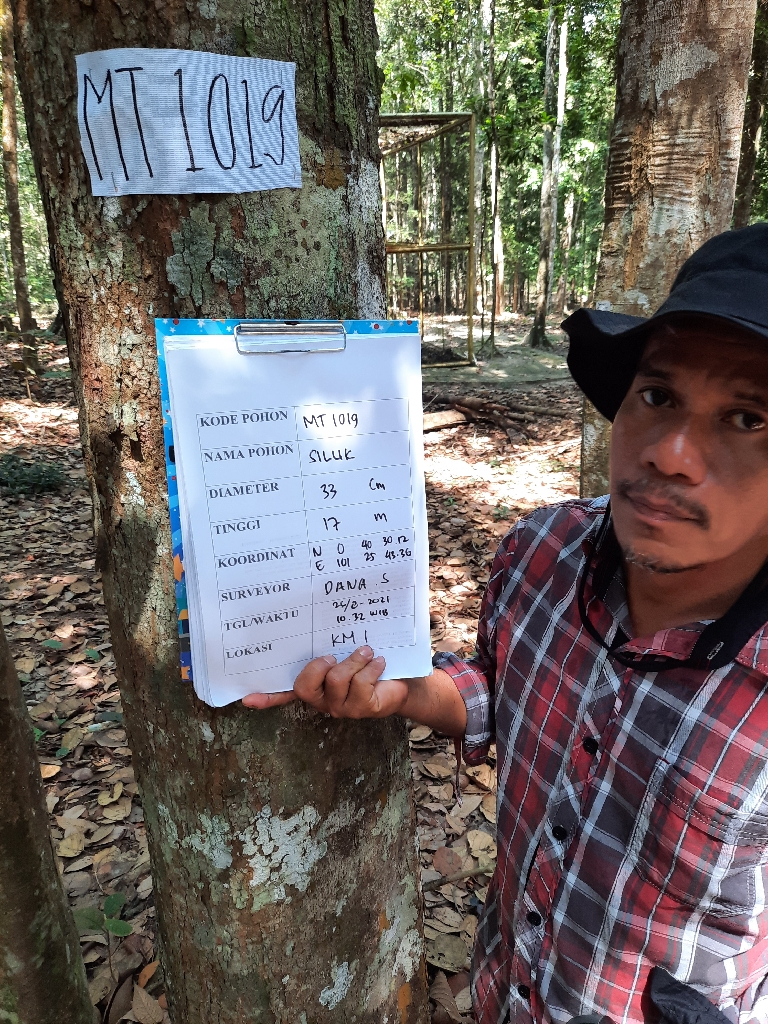 MT 1019
KODE POHON MT 1019
NAMA POHON SILUK
DIAMETER 33 Cm
TINGGI 17 m
KOORDINAT N 0 40 30.12
E 101 25 43.36
SURVEYOR DANA S
TGL/WAKTU 26/8-2021
10.32 WIB
LOKASI KM 1